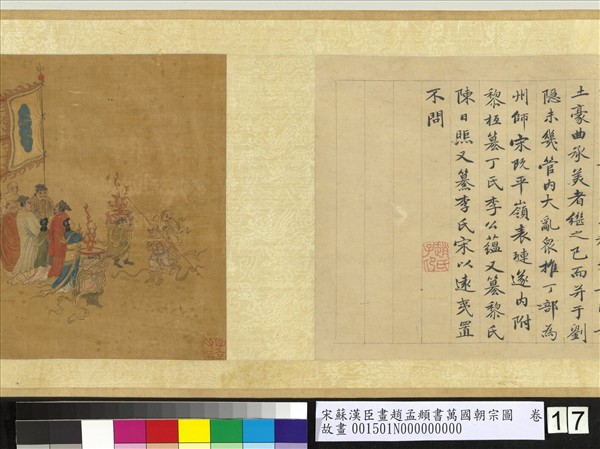 土豪曲承美者繼之已而并于劉
隱未幾管内大亂眾推丁部為
州師宗既平嶺表璉遂内附
黎桓篡丁氏李公蘊又篡黎氏
陳日煚又纂李氏宋以遠戎置
不問
趙氏子昂
宋蘇漢臣畫趙孟頫書萬國朝宗圖 卷
故畫 001501N000000000
17